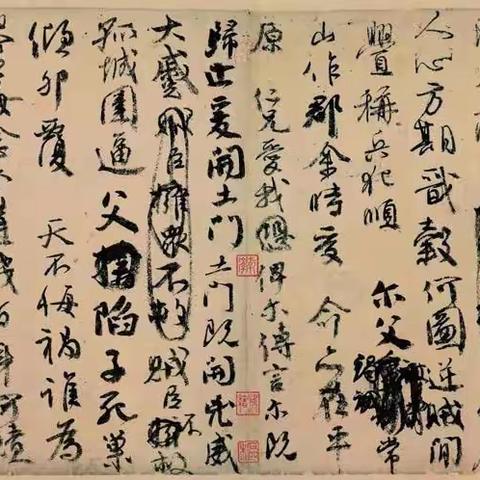 人心方期戩穀何圖逆賊間
釁稱兵犯順 尓父竭誠常
山作郡余時受 命亦在平
原 仁兄愛我俾尓傳言尓既
歸止爰開土門土門既開凶威
大蹙賊臣擁衆不救賊臣不救
孤城圍逼父陷子死巢
傾卵覆 天不悔禍誰為